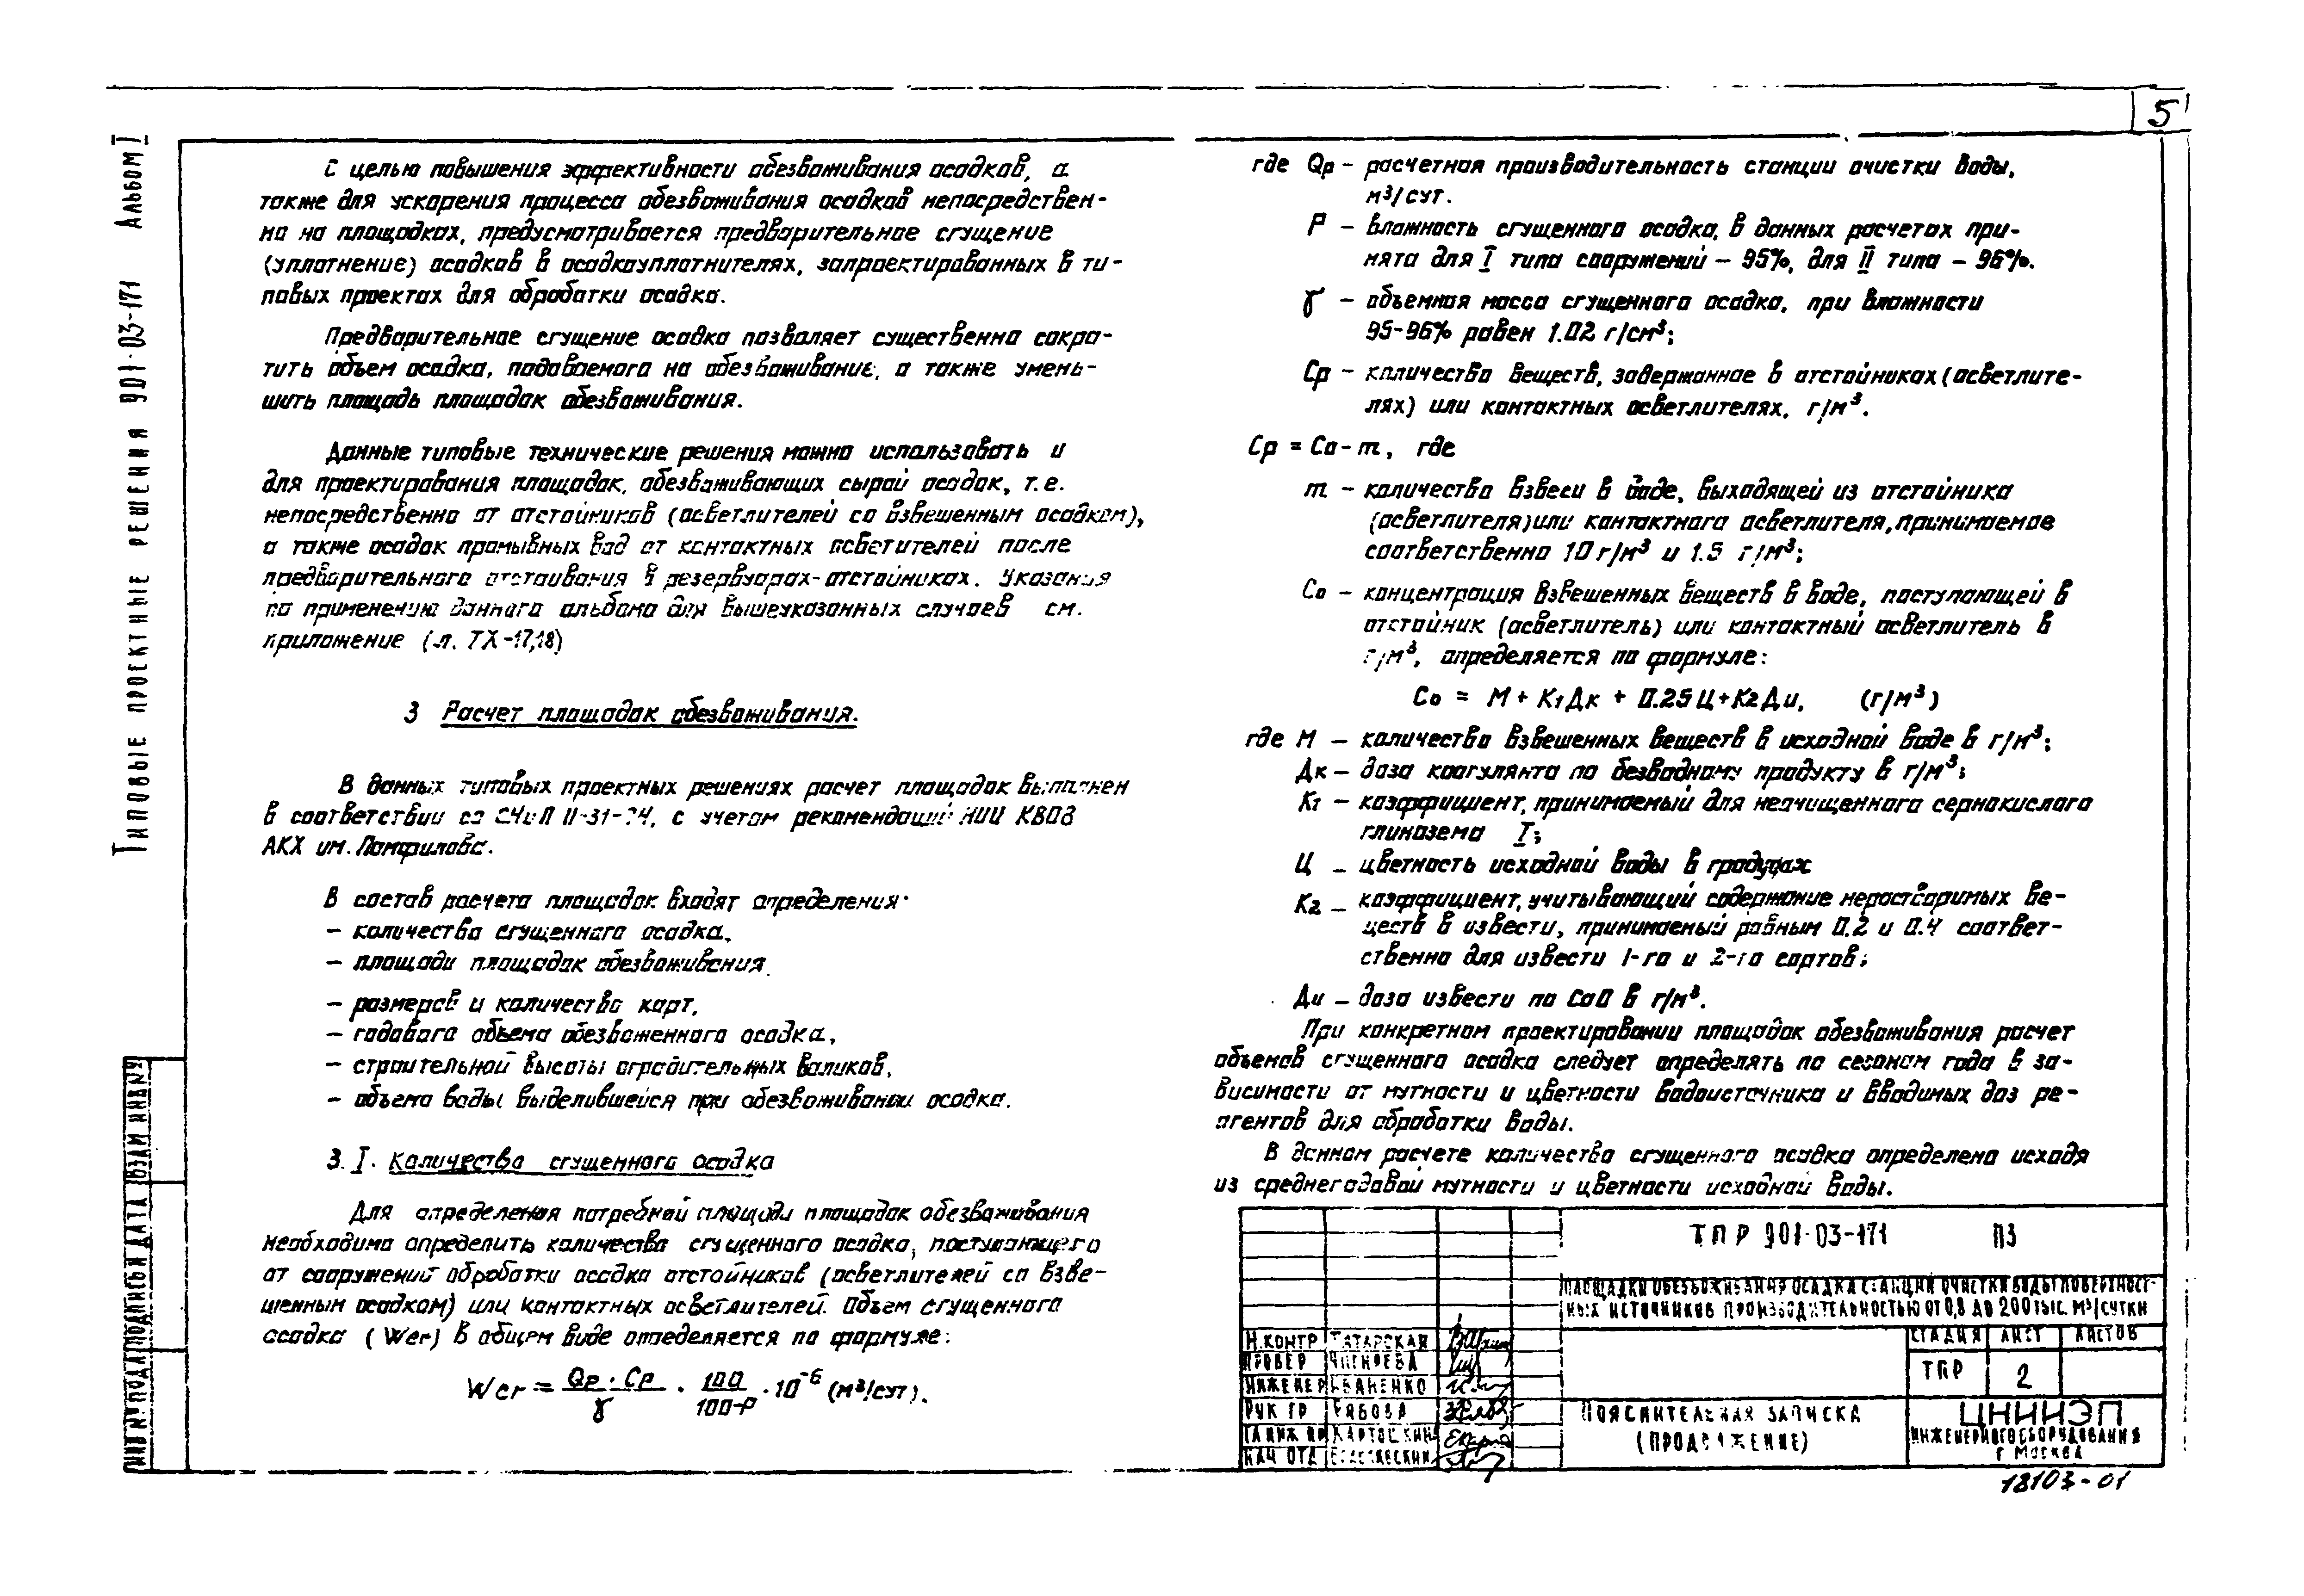 5
Альбом I
Типовые проектные решения 901-03-171
С целью повышения эффективности обезвоживания осадков, а
также для ускорения процесса обезвоживания осадков непосредствен-
но на площадках, предусматривается предварительное сгущение
(уплотнение) осадков в осадкоуплотнителях, запроектированных в ти-
повых проектах для обработки осадка.
Предварительное сгущение осадка позволяет существенно сокра-
тить объем осадка, подаваемого на обезвоживание, а также умень-
шить площадь площадок обезвоживания.
Данные типовые технические решения можно использовать и
для проектирования площадок, обезвоживающих сырой осадок, т.е.
непосредственно от отстойников (осветлителей со взвешенным осадком),
а также осадок промывных вод от контактных осветителей после
предварительного отстаивания в резервуарах-отстойниках. Указания
по применению данного альбома для вышеуказанных случаев см.
приложение (л. ТХ-17,18)
3 Расчет площадок обезвоживания.
В данных типовых проектных решениях расчет площадок выполнен
в соответствии со СНиП II-31-74, с учетом рекомендаций НИИ КВОВ
АКХ им. Памфилова.
В состав расчета площадок входят определения:
- количества сгущенного осадка,
- площади площадок обезвоживания
- размеров и количества карт,
- годового объема обезвоженного осадка,
- строительной высоты оградительных валиков,
- объема воды выделившейся при обезвоживании осадка.
3.I. Количество сгущенного осадка
Для определения потребной площади площадок обезвоживания
необходимо определить количество сгущенного осадка, поступающего
от сооружений обработки осадка отстойников (осветлителей со взве-
шенным осадком) или контактных осветлителей. Объем сгущенного
осадка (Wсг) в общем виде определяется по формуле:
Wсг = Qр · Cр / γ · 100 / 100-P · 10⁻⁶ (м³/сут).
где Qр – расчетная производительность станции очистки воды,
м³/сут.
P – влажность сгущенного осадка, в данных расчетах при-
нята для I типа сооружений – 95%, для II типа – 96%.
γ – объемная масса сгущенного осадка, при влажности
95-96% равен 1.02 г/см³;
Cр – количество веществ, задержанное в отстойниках (осветлите-
лях) или контактных осветлителях, г/м³.
Cр = Cо - m, где
m – количество взвеси в воде, выходящей из отстойника
(осветлителя) или контактного осветлителя, принимаемое
соответственно 10 г/м³ и 1.5 г/м³;
Cо – концентрация взвешенных веществ в воде, поступающей в
отстойник (осветлитель) или контактный осветлитель в
г/м³, определяется по формуле:
Cо = М + К₁Дк + 0.25 Ц + К₂Ди, (г/м³)
где М – количество взвешенных веществ в исходной воде в г/м³;
Дк – доза коагулянта по безводному продукту в г/м³;
К₁ – коэффициент, принимаемый для неочищенного сернокислого
глинозема I;
Ц – цветность исходной воды в градусах
К₂ – коэффициент, учитывающий содержание нерастворимых ве-
ществ в извести, принимаемый равным 0.2 и 0.4 соответ-
ственно для извести 1-го и 2-го сортов;
Ди – доза извести по CaO в г/м³.
При конкретном проектировании площадок обезвоживания расчет
объемов сгущенного осадка следует определять по сезонам года в за-
висимости от мутности и цветности водоисточника и вводимых доз ре-
агентов для обработки воды.
В данном расчете количество сгущенного осадка определено исходя
из среднегодовой мутности и цветности исходной воды.
ТПР 901-03-171 ПЗ
Площадки обезвоживания осадка станций очистки воды поверхност-
ных источников производительностью от 0,8 до 200 тыс. м³/сутки
Н.контр Татарская
Провер
Инженер Иваненко
Рук гр Рябова
Нач отд
Стадия Лист Листов
ТПР 2
Пояснительная записка
(продолжение)
ЦНИИЭП
инженерного оборудования
г Москва
Инв № подл Подпись и дата Взам инв №
18103-01